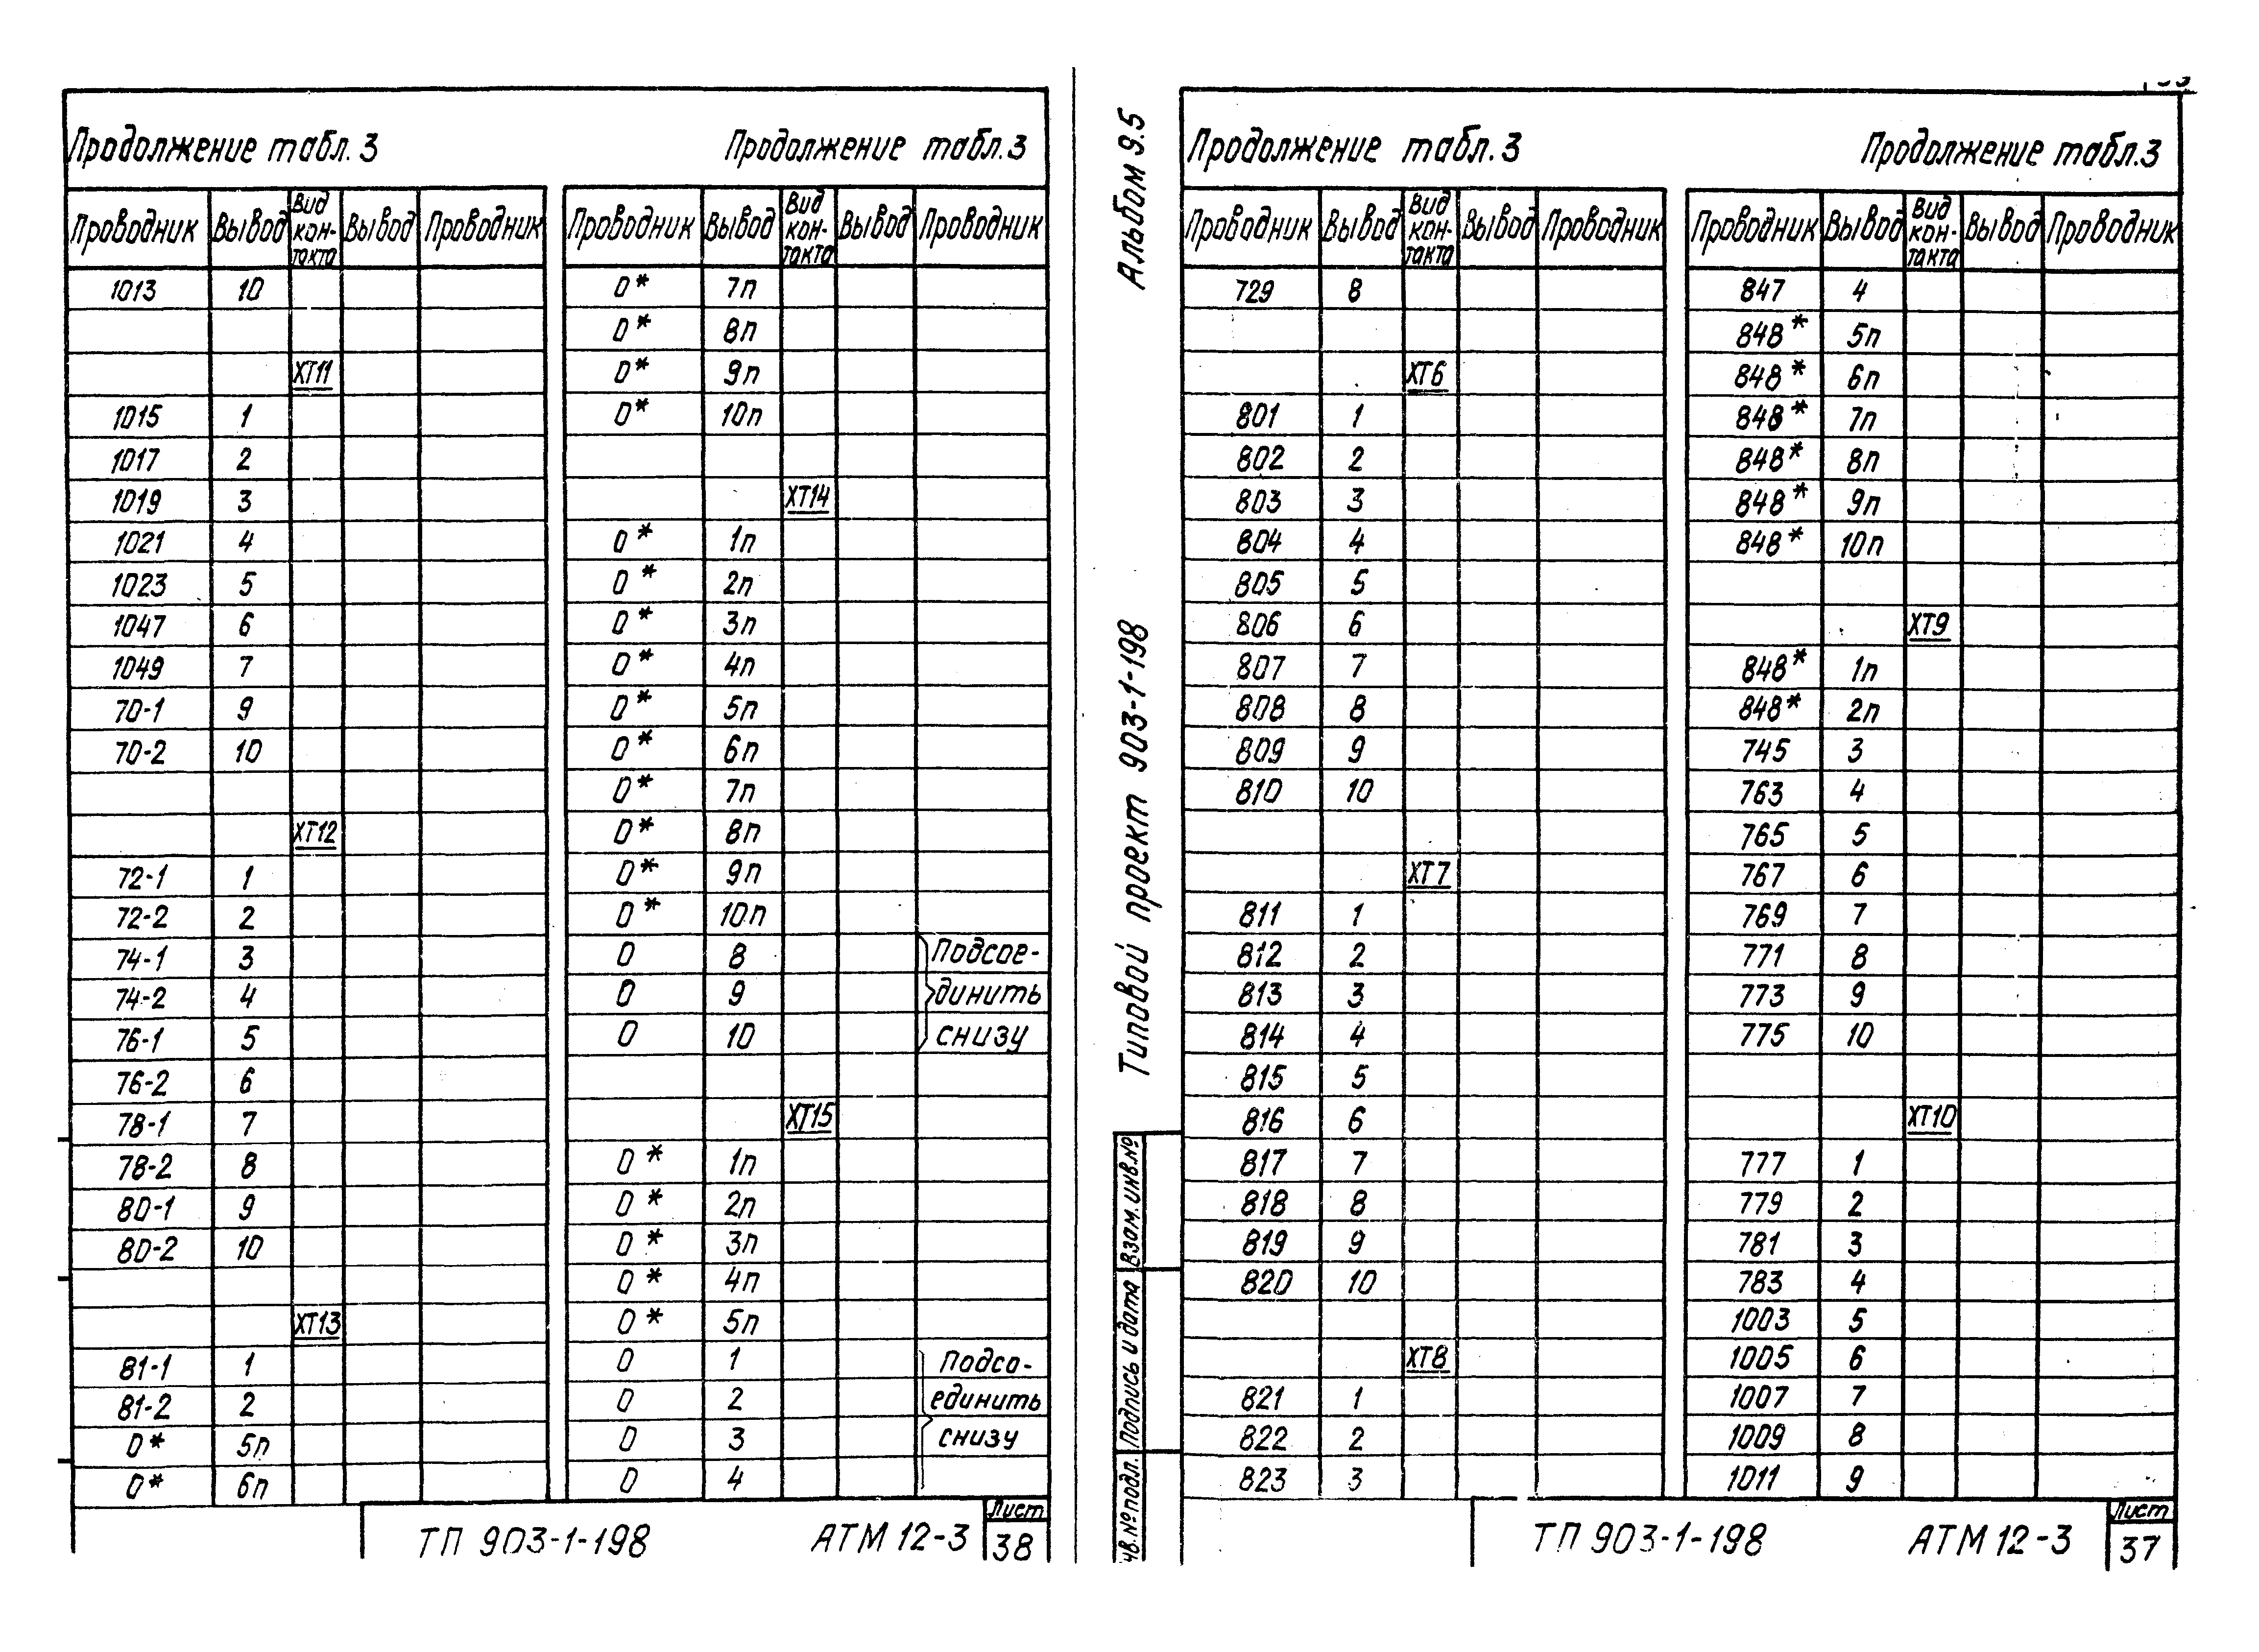 Продолжение табл. 3
Продолжение табл.3
Проводник Вывод Вид кон-такта Вывод Проводник
1013 10
ХТ11
1015 1
1017 2
1019 3
1021 4
1023 5
1047 6
1049 7
70-1 9
70-2 10
ХТ12
72-1 1
72-2 2
74-1 3
74-2 4
76-1 5
76-2 6
78-1 7
78-2 8
80-1 9
80-2 10
ХТ13
81-1 1
81-2 2
0* 5п
0* 6п
Проводник Вывод Вид кон-такта Вывод Проводник
0* 7п
0* 8п
0* 9п
0* 10п
ХТ14
0* 1п
0* 2п
0* 3п
0* 4п
0* 5п
0* 6п
0* 7п
0* 8п
0* 9п
0* 10п
0 8 Подсое-
0 9 динить
0 10 снизу
ХТ15
0* 1п
0* 2п
0* 3п
0* 4п
0* 5п
0 1 Подсо-
0 2 единить
0 3 снизу
0 4
ТП 903-1-198 АТМ 12-3
Лист
38
Альбом 9.5
Типовой проект 903-1-198
Взам. инв.№
Подпись и дата
нв.№подл.
Продолжение табл.3
Продолжение табл.3
Проводник Вывод Вид кон-такта Вывод Проводник
729 8
ХТ6
801 1
802 2
803 3
804 4
805 5
806 6
807 7
808 8
809 9
810 10
ХТ7
811 1
812 2
813 3
814 4
815 5
816 6
817 7
818 8
819 9
820 10
ХТ8
821 1
822 2
823 3
Проводник Вывод Вид кон-такта Вывод Проводник
847 4
848* 5п
848* 6п
848* 7п
848* 8п
848* 9п
848* 10п
ХТ9
848* 1п
848* 2п
745 3
763 4
765 5
767 6
769 7
771 8
773 9
775 10
ХТ10
777 1
779 2
781 3
783 4
1003 5
1005 6
1007 7
1009 8
1011 9
ТП 903-1-198 АТМ 12-3
Лист
37